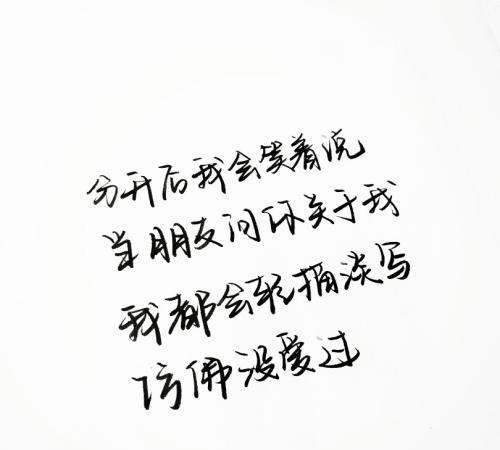 分开后我会笑着说
当朋友问你关于我
我都会轻描淡写
仿佛没爱过